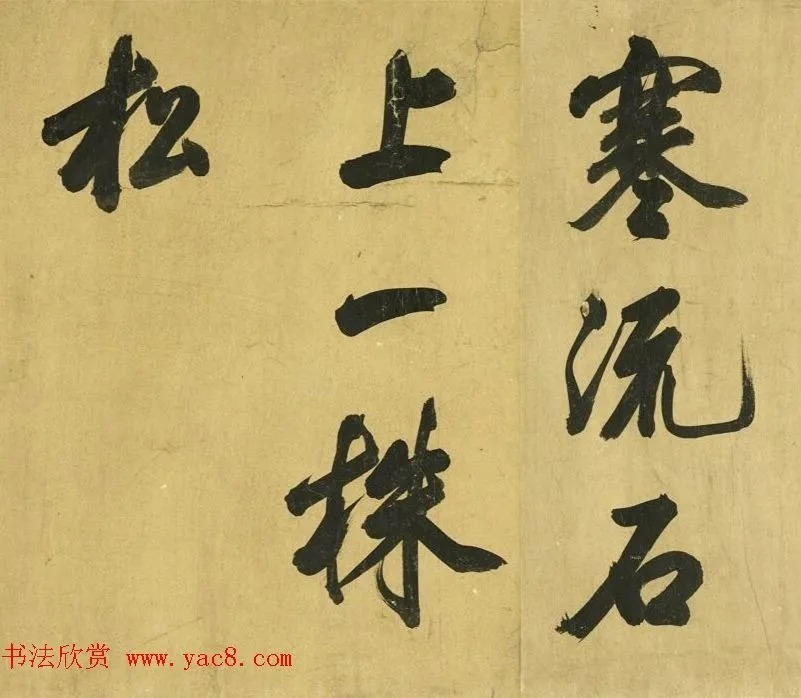 寒流石
上一株
松
书法欣赏 www.yac8.com